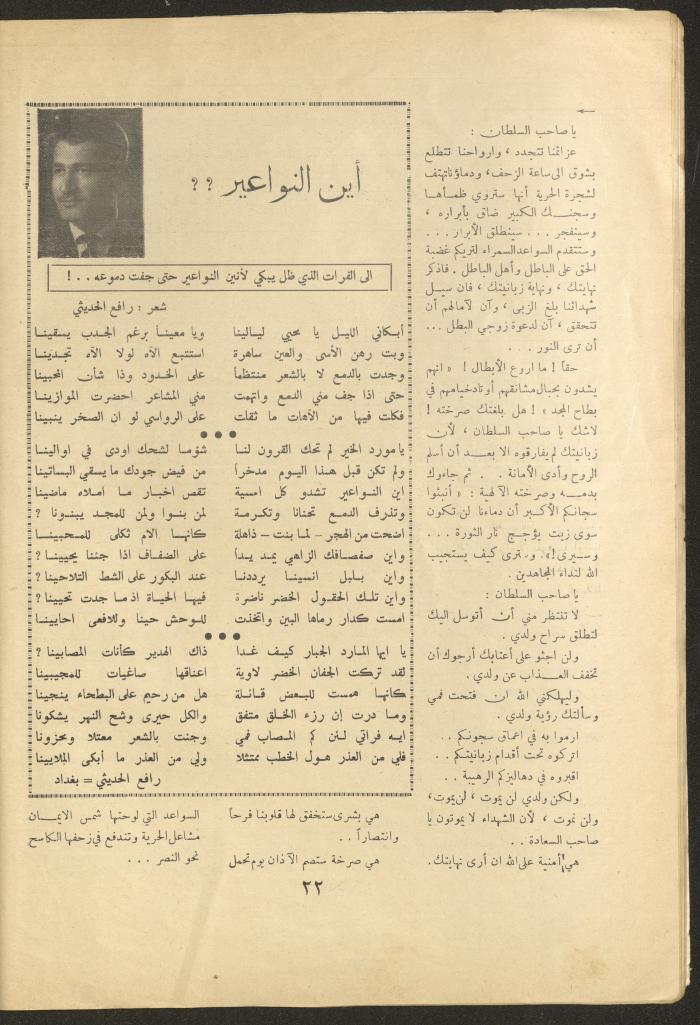 يا صاحب السلطان :
عزائمنا تتجدد ، وارواحنا تتطلع
بشوق الى ساعة الزحف، ودماؤنا تهتف
لشجرة الحرية أنها ستروي ظمأها
وسجنك الكبير ضاق بأبراره ،
وسينفجر . . . سينطلق الأبرار . . .
وستتقدم السواعد السمراء لتريكم غضبة
الحق على الباطل وأهل الباطل . فاذكر
نهايتك ، ونهاية زبانيتك ، فان سيل
شهدائنا بلغ الزبى ، وآن لآمالهم أن
تتحقق ، آن لدعوة زوجي البطل ...
أن ترى النور . . .
حقاً ! ما اروع الأبطال ! « انهم
يشدون بحبال مشانقهم أوتاد خيامهم في
بطاح المجد » ! هل بلغتك صرخته !
لاشك يا صاحب السلطان ، لأن
زبانيتك لم يفارقوه الا بعد أن أسلم
الروح وأدى الأمانة . . ثم جاءوك
بدمه وصرخته الآلهية : « أنبئوا
سجانكم الأكبر أن دماءنا لن تكون
سوى زيت يؤجج نار الثورة . . .
وسيرى !» وسترى كيف يستجيب
الله لنداء المجاهدين .
يا صاحب السلطان :
لا تنتظر مني أن أتوسل اليك
لتطلق سراح ولدي .
ولن اجثو على أعتابك أرجوك أن
تخفف العذاب عن ولدي .
وليهلكني الله ان فتحت فمي
وسألتك رؤية ولدي .
ارموا به في اعماق سجونكم . .
اتركوه تحت أقدام زبانيتكم . .
اقبروه في دهاليزكم الرهيبة . .
ولكن ولدي لن يموت ، لن يموت،
ولن نموت ، لأن الشهداء لا يموتون يا
صاحب السعادة . .
هي أمنية على الله ان أرى نهايتك .
أين النواعير ؟ ؟
الى الفرات الذي ظل يبكي لأنين النواعير حتى جفت دموعه . . !
شعر : رافع الحديثي
أبكاني الليل يا محيي ليالينا ويا معيناً برغم الجدب يسقينا
وبت رهن الأسى والعين ساهرة استتبع الآه لولا الآه تجدينا
وجدت بالدمع لا بالشعر منتظماً على الخدود وذا شأن المحبينا
حتى اذا جف مني الدمع واتهمت مني المشاعر احضرت الموازينا
فكلت فيها من الآهات ما ثقلت على الرواسي لو ان الصخر ينبينا
● ● ●
يا مورد الخير لم تحك القرون لنا شؤما لشحك اودى في اوالينا
ولم تكن قبل هذا اليوم مدخراً من فيض جودك ما يسقي البساتينا
اين النواعير تشدو كل امسية تقص اخبار ما املاه ماضينا
وتذرف الدمع تحنانا وتكرمة لمن بنوا ولمن للمجد يبنونا ؟
اضحت من الهجر - لما بنت - ذاهلة كانها الام ثكلى للمحبينا
واين صفصافك الزاهي يمد يداً على الضفاف اذا جئنا يحيينا ؟
واين بلبل انسينا يرددنا عند البكور على الشط التلاحينا ؟
واين تلك الحقول الخضر ناضرة فيها الحياة اذا ما جدت تحيينا ؟
امست كدار رماها البين واتخذت للوحش حينا وللافعى احايينا
● ● ●
يا ايها المارد الجبار كيف غدا ذاك الهدير كأنات المصابينا ؟
لقد تركت الجفان الخضر لاوية اعناقها صاغيات للمجيبينا
كانها همست للبعض قائلة هل من رحيم على البطحاء ينجينا
وما درت إن رزء الخلق متفق والكل حيرى وشح النهر يشكونا
ايه فراتي لئن كم المصاب فمي وجئت بالشعر معتلا ومحزونا
فلي من العذر هول الخطب ممتثلا ولي من العذر ما أبكى الملايينا
رافع الحديثي = بغداد
هي بشرى ستخفق لها قلوبنا فرحاً
وانتصاراً . .
هي صرخة ستصم الآذان يوم تحمل
السواعد التي لوحتها شمس الايمان
مشاعل الحرية وتندفع في زحفها الكاسح
نحو النصر . . .
٢٢